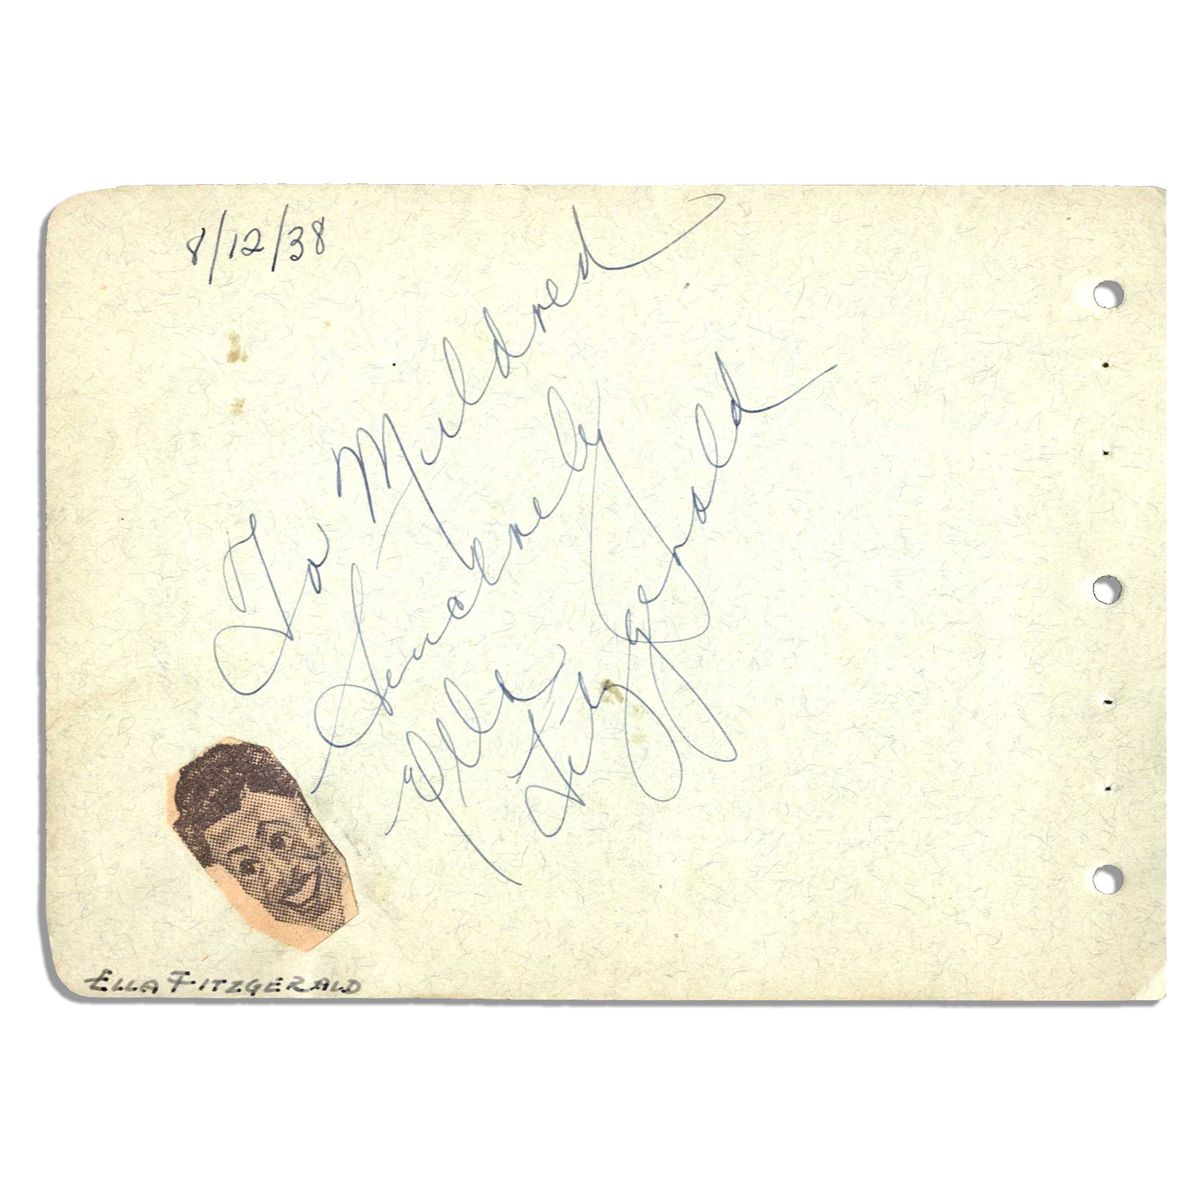 8/12/38
To Mildred
Sincerely
Ella Fitzgerald
ELLA FITZGERALD